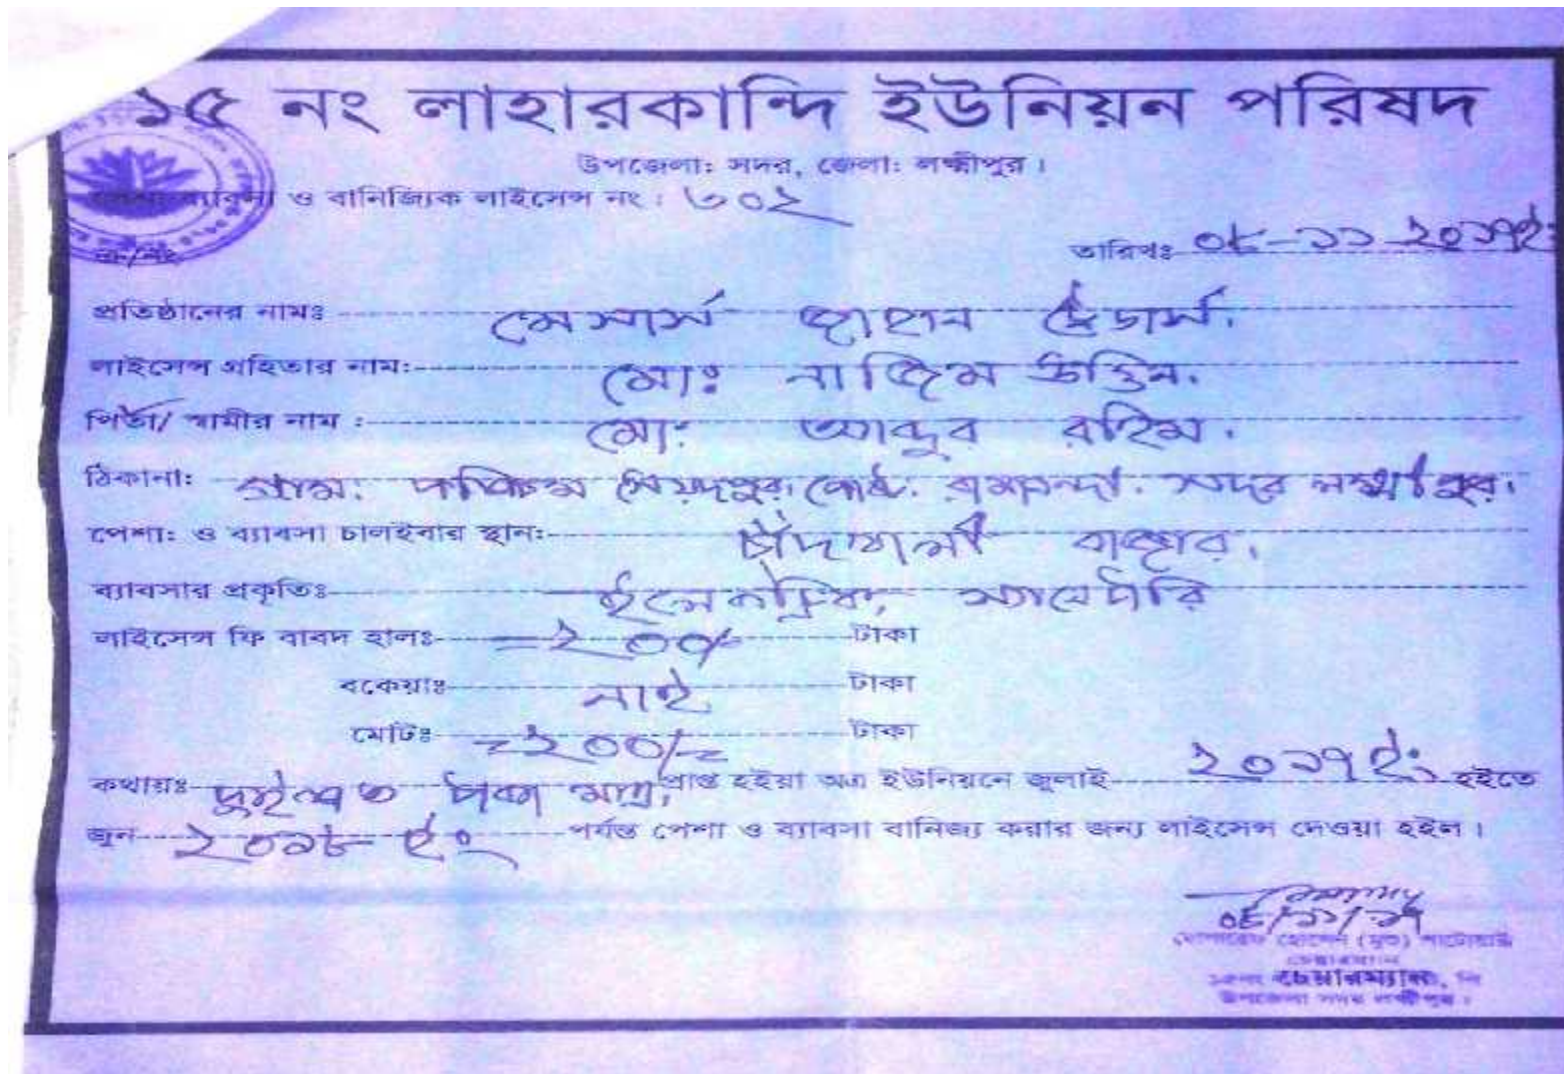 ১৫ নং লাহারকান্দি ইউনিয়ন পরিষদ
উপজেলা: সদর, জেলা: লক্ষ্মীপুর।
ও বানিজ্যিক লাইসেন্স নং : ৩০২
তারিখঃ ০৮-১১-২০১৭ইং
প্রতিষ্ঠানের নামঃ মেসার্স জাহান ট্রেডার্স.
লাইসেন্স গ্রহিতার নাম: মোঃ নাজিম উদ্দিন.
পিতা/ স্বামীর নাম : মো: আব্দুর রহিম.
ঠিকানা: গ্রাম. পশ্চিম সৈয়দপুর. পোষ্ট. সদর লক্ষ্মীপুর.
পেশা: ও ব্যাবসা চালইবার স্থান: চাঁদখালী বাজার.
ব্যাবসার প্রকৃতিঃ ইলেকট্রিক, স্যানেটারি
লাইসেন্স ফি বাবদ হালঃ =২০০/- টাকা
বকেয়াঃ নাই টাকা
মোটঃ =২০০/= টাকা
কথায়ঃ দুইশত টাকা মাত্র, প্রাপ্ত হইয়া অত্র ইউনিয়নে জুলাই ২০১৭ ইং হইতে
জুন ২০১৮ ইং পর্যন্ত পেশা ও ব্যাবসা বানিজ্য করার জন্য লাইসেন্স দেওয়া হইল।
০৮/১১/১৭
হোসেন (মুশু) পাটোয়ারী
চেয়ারম্যান
উপজেলা সদর লক্ষ্মীপুর।